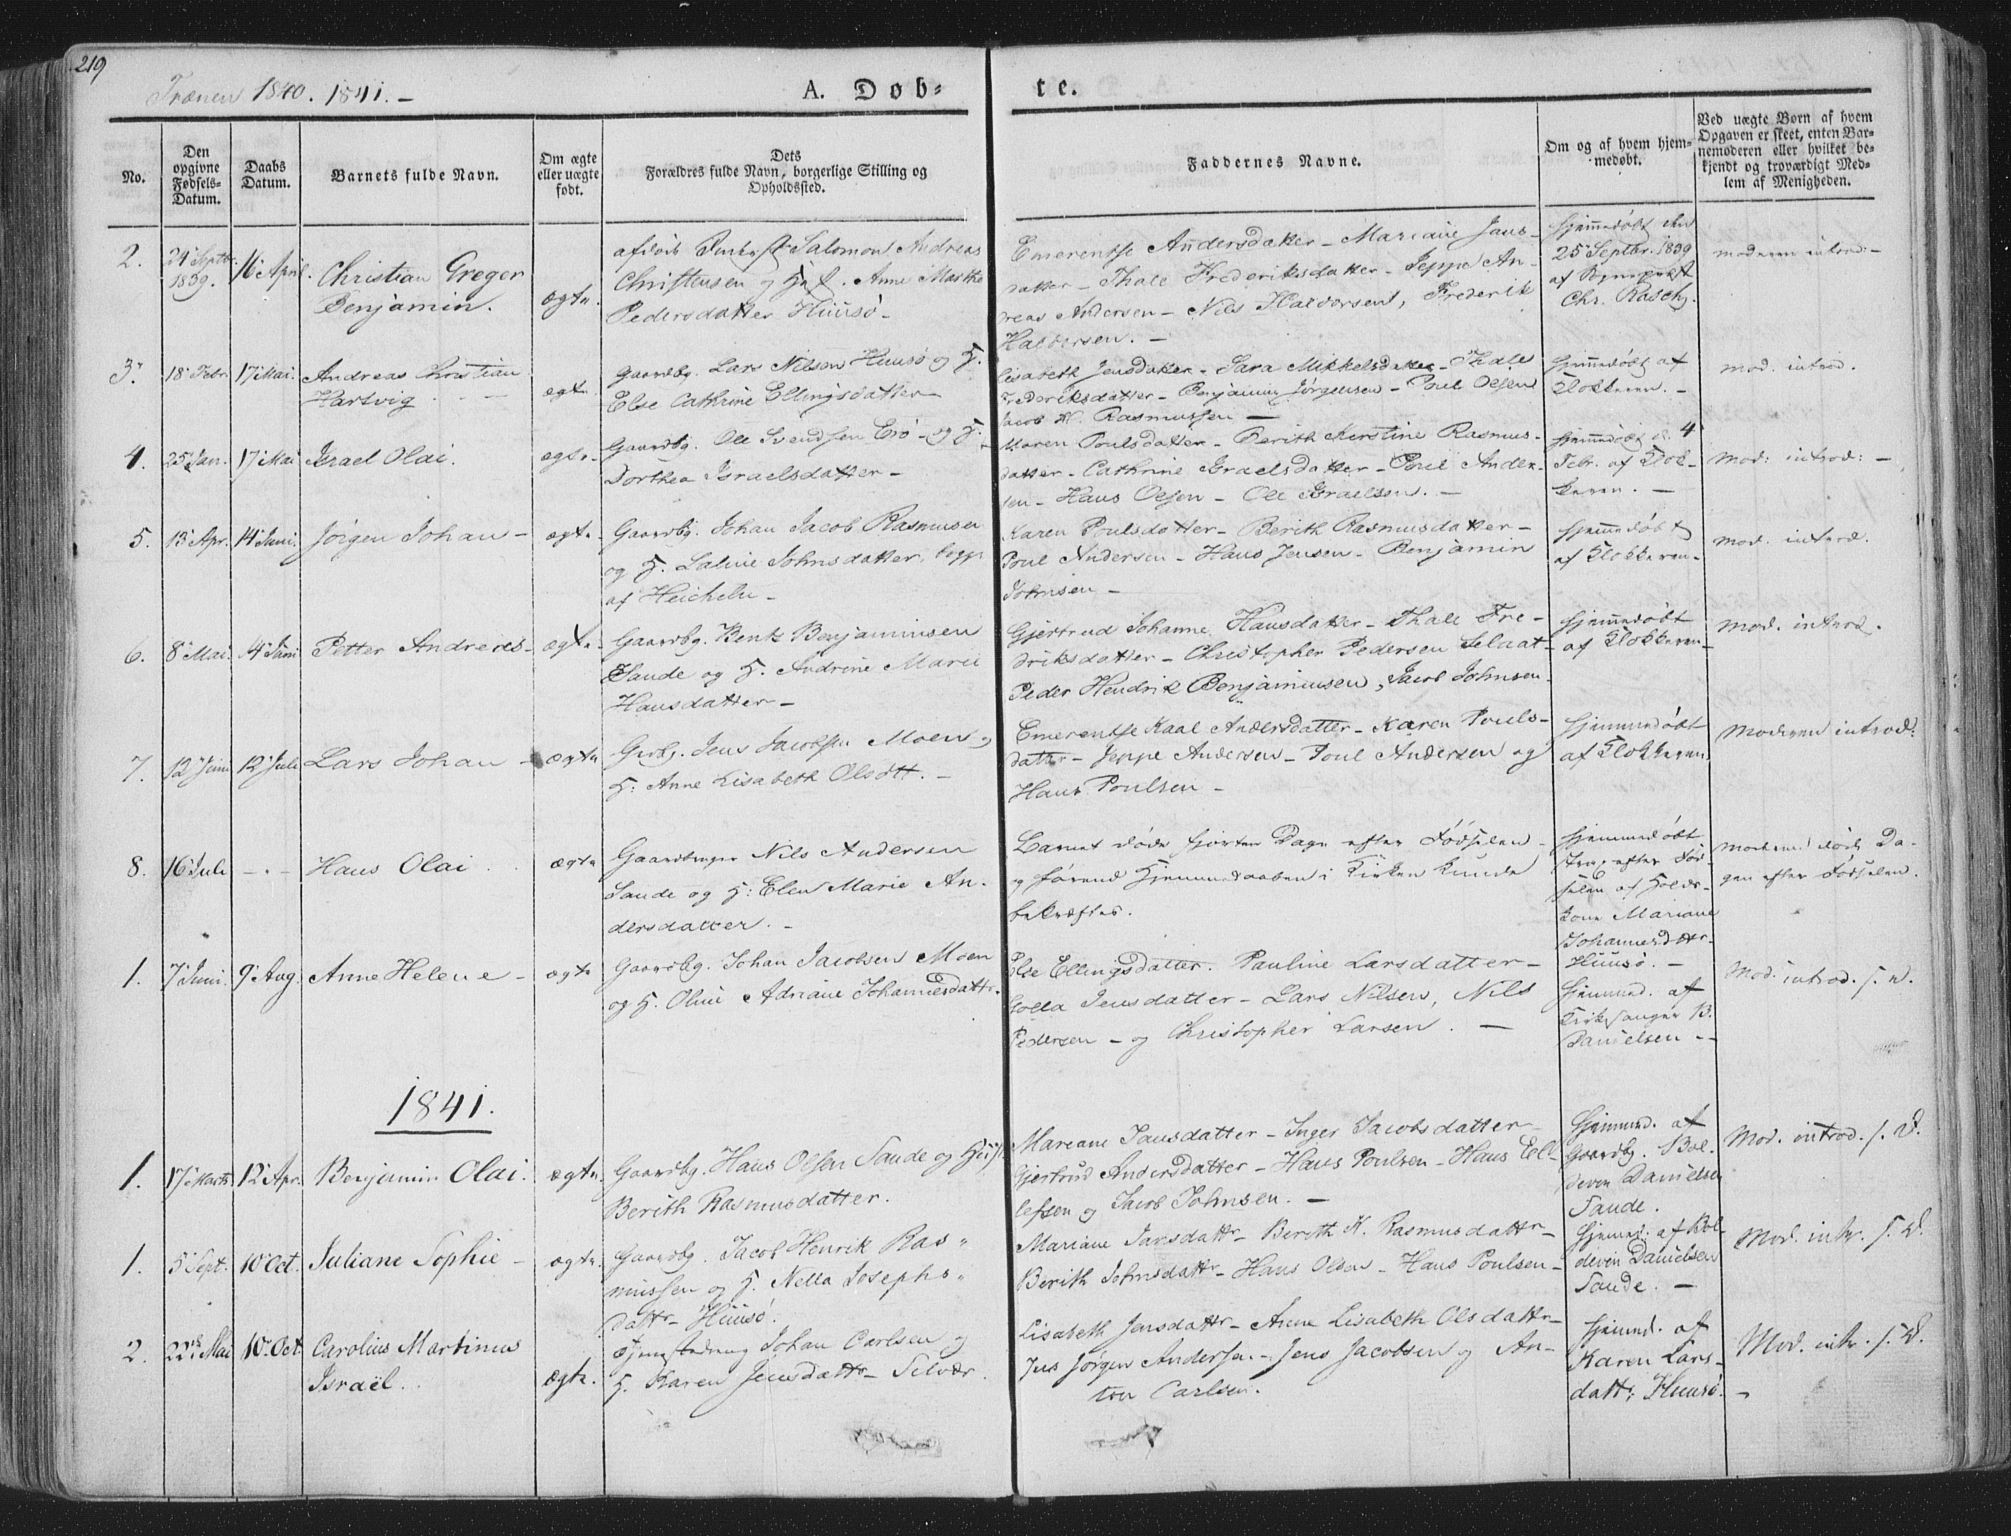 219
Trænen 1840. 1841. –
A. Døb=
te.
No.
Den opgivne Fødsels-Datum.
Daabs Datum.
Barnets fulde Navn.
Om ægte eller uægte født.
Dets Forældres fulde Navn, borgerlige Stilling og Opholdssted.
Faddernes Navne.
Om og af hvem hjemmedøbt.
Ved uægte Børn af hvem Opgaven er skeet, enten Barnemoderen eller hvilket bekjendt og troværdigt Medlem af Menigheden.
2.
24 Septbr 1839.
16 April.
Christian Greger
Benjamin.
ægte.
Salomon Andreas
Christensen og Anne Marthe
Pedersdatter Huusø –
Emerentse Andersdatter – Mariane Jans-
datter – Thale Frederiksdatter – Jeppe An-
dreas Andersen – Nils Haldorsen, Frederik
Haldorsen. –
Hjemmedøbt den
25 Septbr. 1839
af
Chr. Rasch.
moderen introd: –
3.
18 Febr.
17 Mai.
Andreas Christian
Hartvig
ægte.
Gaardbg. Lars Nilsen Huusø og H.
Else Cathrine Ellingsdatter –
Lisabeth Jensdatter – Sara Mikkelsdatter – Thale
Frederiksdatter – Benjamin Jørgensen – Poul Olsen
Jacob H. Rasmussen –
hjemmedøbt af
Klokkeren. –
mod. introd.
4.
25 Jan.
17 Mai
Israel Olai.
ægte.
Gaardbg. Ole Svendsen og H.
Dorthea Israelsdatter –
Maren Poulsdatter – Berith Kerstine Rasmus-
datter – Cathrine Israelsdatter – Poul Ander-
sen – Hans Olsen – Ole Israelsen. –
hjemmedøbt d. 4
Febr. af Klok-
keren. –
Mod: introd: –
5.
13 Apr.
14 Juni
Jørgen Johan –
ægte.
Gaardbg. Johan Jacob Rasmussen
og H. Johnsdatter, begge
af
Karen Poulsdatter – Berith Rasmusdatter –
Poul Andersen – Hans Jensen – Benjamin
Johnsen –
hjemmedøbt
af Klokkeren –
mod. introd.
6.
8 Mai.
14 Juni
Petter Andreas –
ægte.
Gaardbg. Bent Benjaminsen
Sande og H. Andrine Marie
Hansdatter –
Gjertrud Johanne Hansdatter – Thale Fre-
driksdatter – Christopher Pedersen Selaat –
Peder Hendrik Benjaminsen, Jacob Johnsen.
hjemmedøbt
af Klokkeren –
mod. introd.
7.
12 Juni
12 Juli
Lars Johan –
ægte
Grbg. Jens Jacobsen Moen og
H. Anne Lisabeth Olsdtt. –
Emerentse Kaal Andersdatter – Karen Pouls-
datter – Jeppe Andersen – Poul Andersen og
Hans Poulsen –
hjemmedøbt
af Klokkeren.
Moderen introd:
8.
16 Juli
– . –
Hans Olai .
ægte
Gaardbruger Nils Andersen
Sande og H: Elen Marie An-
dersdatter. –
Barnet døde fjorten Dage efter Fødselen –
og førend Hjemmedaaben i Kirken kunde
bekræftes.
hjemmedøbt
strax efter Fød-
selen af
kone Mariane
Johannesdttr.
Huusø. –
moderen døde Da-
gen efter Fødselen.
1.
7 Juni.
9 Aug.
Anne Helene –
ægte
Gaardbg. Johan Jacobsen Moen
og H. Oline Adriane Johannesdattr.
Else Ellingsdatter. Pauline Larsdatter –
Golla Jensdatter – Lars Nilsen, Nils
Pedersen – og Christopher Larsen. –
hjemmed. af
Kirkesanger B.
Danielsen –
Mod. introd. s. d.
1841.
1.
17 Marts
12 Apr.
Benjamin Olai.
ægte.
Gaardbg. Hans Olsen Sande og
Berith Rasmusdatter.
Mareane Jansdatter – Inger Jacobsdatter –
Gjertrud Andersdatter – Hans Poulsen – Hans El-
lefsen og Jacob Johnsen. –
hjemmed. af
Gaardbg. Bol-
deven Danielsen
Sande.
Mod. introd. s. d.
1.
5 Sept.
10 Oct.
Juliane Sophie –
ægte.
Gaardbg. Jacob Henrik Ras-
mussen og H. Nella Josephs-
dattr – Huusø.
Mariane Jansdattr – Berith K. Rasmusdattr –
Berith Johnsdattr – Hans Olsen – Hans Poulsen –
hjemmed: af Bol-
deven Danielsen
Sande. –
Mod. intr. s. d.
2.
22de Mai
10 Oct.
Carolius Martinus
Israël.
ægte.
Tjenestedreng Johan Carlsen og
H. Karen Jensdattr – Selvær.
Lisabeth Jensdattr – Anne Lisabeth Olsdattr –
Jens Jørgen Andersen – Jens Jacobsen og An-
ton Carlsen.
hjemmed. af
Karen Lars-
dattr, Huusø. –
Mod. intr. s. d.